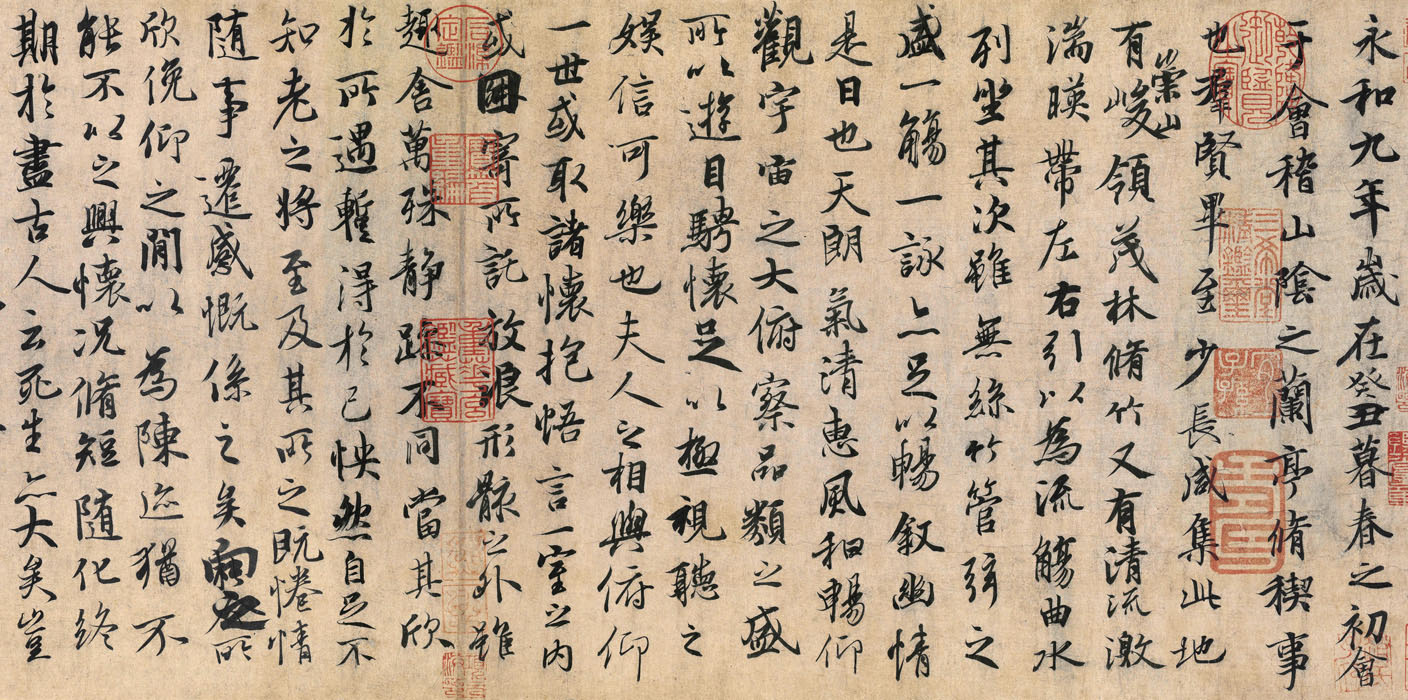 永和九年歲在癸丑暮春之初會
于會稽山陰之蘭亭脩稧事
也羣賢畢至少長咸集此地
有崇山峻領茂林脩竹又有清流激
湍暎帶左右引以為流觴曲水
列坐其次雖無絲竹管弦之
盛一觴一詠亦足以暢敘幽情
是日也天朗氣清惠風和暢仰
觀宇宙之大俯察品類之盛
所以遊目騁懷足以極視聽之
娛信可樂也夫人之相與俯仰
一世或取諸懷抱悟言一室之內
或因寄所託放浪形骸之外雖
趣舍萬殊靜躁不同當其欣
於所遇暫得於己怏然自足不
知老之將至及其所之既惓情
隨事遷感慨係之矣向之所
欣俛仰之閒以為陳迹猶不
能不以之興懷況脩短隨化終
期於盡古人云死生亦大矣豈
三希堂精鑑璽
宜子孫